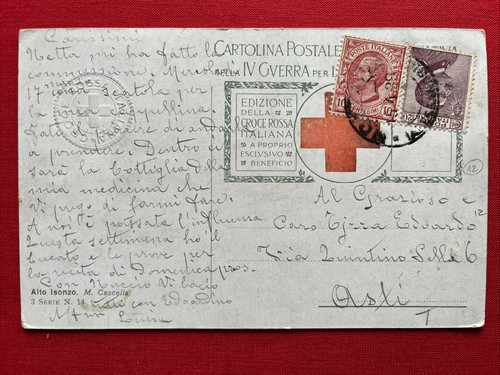 Carissimi
Netta mi ha fatto la
commissione. Mercoledì
17 una scatola per
la zia
fate il piacere di andarla
a prendere. Dentro ci
sarà la bottiglia della
mia medicina che
Vi prego di farmi fare.
A noi è passata l'influenza
Questa settimana ho il
bucato e le prove per
la recita di Domenica pros.
Con Nuccio Vi bacio
tutti con Edoardino
Luisa
Alto Isonzo. M. Cascella
3 SERIE N. 14
CARTOLINA POSTALE
DELLA IV GVERRA PER L'
EDIZIONE
DELLA
CROCE ROSSA
ITALIANA
A PROPRIO
ESCLVSIVO
BENEFICIO
POSTE ITALIANE
10 CENTESIMI 10
12
Al Grazioso e
Caro Edoardo
Via Quintino Sella 6
Asti
T